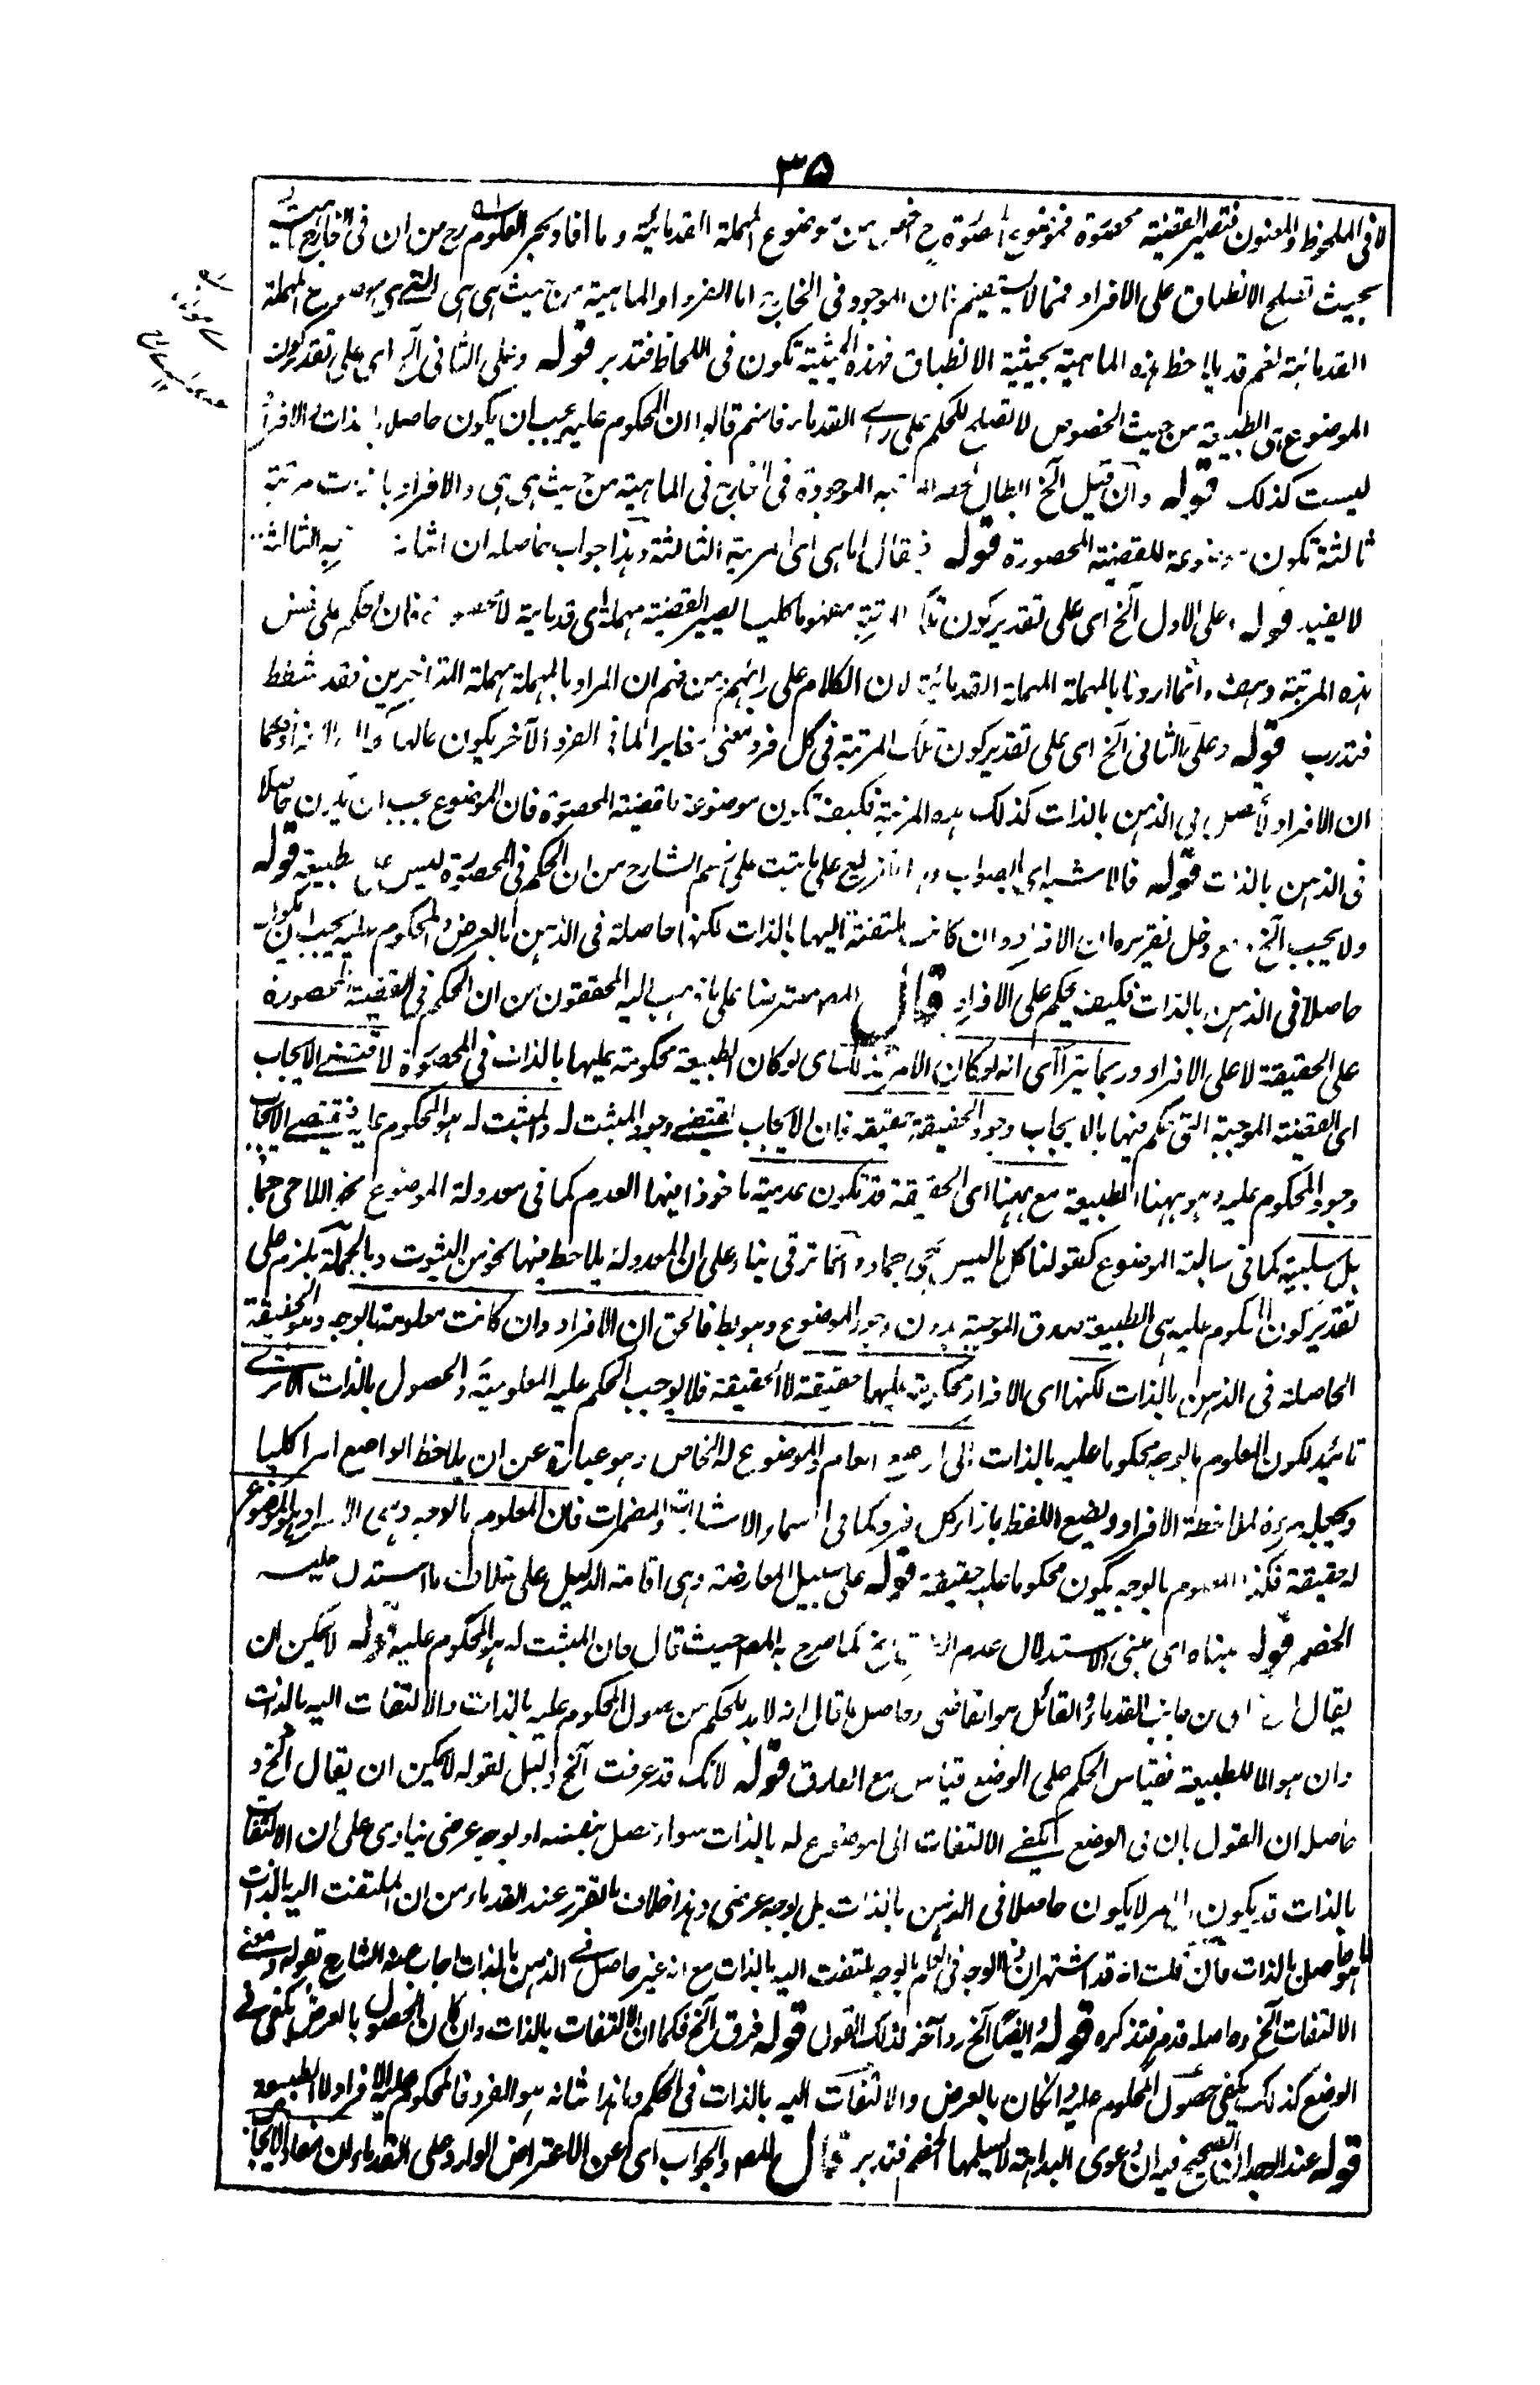 ٣٥
لا فى الملحوظ والمعنون فتصير القضية محصورة فموضوع المحصورة ح اخص من موضوع المهملة القدمائية وما افاد بحر العلوم رح من ان فى الخارج ماهية
بحيث تصلح الانطباق على الافراد فمما لا يستقيم فان الموجود فى الخارج اما الفرد او الماهية من حيث هى هى التى هى موضوع المهملة
القدمائية نعم قد يلاحظ هذه الماهية بحيثية الانطباق فهذه الحيثية تكون فى اللحاظ فتدبر قوله وعلى الثانى الخ اى على تقدير كون
الموضوع هى الطبيعة من حيث الخصوص لا تصلح للحكم على راى القدماء فانهم قالوا ان المحكوم عليه يجب ان يكون حاصلا بالذات والافراد
ليست كذلك قوله وان قيل الخ ابطال لحصر الموجودة فى الخارج فى الماهية من حيث هى هى والافراد بان مرتبة
ثالثة تكون موضوعة للقضية المحصورة قوله فيقال ما هى اى المرتبة الثالثة وهذا جواب حاصله ان اثبات الثالثة
لا يفيد قوله على الاول الخ اى على تقدير كون تلك المرتبة مفهوما كليا يصير القضية مهملة اى قدمائية لا محصورة فان الحكم على نفس
هذه المرتبة وانما اردنا بالمهملة المهملة القدمائية لان الكلام على رائهم ومن فهم ان المراد بالمهملة مهملة المتاخرين فقد شطط
فتدرب قوله وعلى الثانى الخ اى على تقدير كون تلك المرتبة فى كل فرد معنى مغايرا لما فى الفرد الآخر يكون حالها كحال الافراد فكما
ان الافراد لا تحصل فى الذهن بالذات كذلك هذه المرتبة فكيف تكون موضوعة للقضية المحصورة فان الموضوع يجب ان يكون حاصلا
فى الذهن بالذات قوله فالاشبه اى الصواب وهذا تفريع على ما ثبت على زعم الشارح من ان الحكم فى المحصورة ليس على الطبيعة قوله
ولا يجب الخ دفع دخل تقريره ان الافراد وان كانت ملتفتة اليها بالذات لكنها حاصلة فى الذهن بالعرض والمحكوم عليه يجب ان يكون
حاصلا فى الذهن بالذات فكيف يحكم على الافراد قال المصـ معترضا على ما ذهب اليه المحققون من ان الحكم فى القضية المحصورة
على الحقيقة لا على الافراد وربما يترآى انه لو كان الامر كذلك اى لو كان الطبيعة محكومة عليها بالذات فى المحصورة لاقتضى الايجاب
اى القضية الموجبة التى حكم فيها بالايجاب وجود الحقيقة حقيقة فان الايجاب يقتضى وجود المثبت له والمثبت له هو المحكوم عليه فيقتضى الايجاب
وجود المحكوم عليه وهو ههنا الطبيعة مع انها اى الحقيقة قد تكون عدمية ماخوذا فيها العدم كما فى معدولة الموضوع نحو اللاحى جماد
بل سلبية كما فى سالبة الموضوع كقولنا كل ما ليس بحى جماد وانما ترقى بناء على ان المعدولة يلاحظ فيها نحو من الثبوت وبالجملة يلزم على
تقدير كون المحكوم عليه هى الطبيعة صدق الموجبة بدون وجود الموضوع وهو بط فالحق ان الافراد وان كانت معلومة بالوجه وهو الحقيقة
الحاصلة فى الذهن بالذات لكنها اى الافراد محكومة عليها حقيقة لا الحقيقة فلا يوجب الحكم عليه المعلومية والحصول بالذات الا ترى
تائيد لكون المعلوم بالوجه محكوما عليه بالذات الى الوضع العام والموضوع له الخاص وهو عبارة عن ان يلاحظ الواضع امرا كليا
ويجعل مرآة لملاحظة الافراد ويضع اللفظ بازاء كل فرد كما فى اسماء الاشارات والمضمرات فان المعلوم بالوجه وهى الافراد هو الموضوع
له حقيقة فكذا المعلوم بالوجه يكون محكوما عليه حقيقة قوله على سبيل المعارضة وهى اقامة الدليل على خلاف ما استدل عليه
الخصم قوله مبناه اى مبنى الاستدلال عدم الخ كما صرح به المصـ حيث قال فان المثبت له هو المحكوم عليه قوله لا يمكن ان
يقال اى من جانب القدماء القائل هو القاضى وحاصل ما قال انه لا بد للحكم من حصول المحكوم عليه بالذات والالتفات اليه بالذات
وان هو الا للطبيعة فقياس الحكم على الوضع قياس مع الفارق قوله لانك قد عرفت الخ دليل لقوله لا يمكن ان يقال الخ و
حاصله ان القول بان فى الوضع يكفى الالتفات الى الموضوع له بالذات سواء حصل بنفسه او بوجه عرضى ينادى على ان الالتفات
بالذات قد يكون الى امر لا يكون حاصلا فى الذهن بالذات بل بوجه عرضى وهذا خلاف ما تقرر عند القدماء من ان الملتفت اليه بالذات
هو الحاصل بالذات فان قلت انه قد اشتهر ان ذا الوجه فى العلم بالوجه ملتفت اليه بالذات مع انه غير حاصل فى الذهن بالذات اجاب عنه الشارح بقوله ومعنى
الالتفات الخ وحاصله قد مر فتذكره قوله ايضا الخ رد آخر لذلك القول قوله فرق الخ فكما ان الالتفات بالذات وان كان الحصول بالعرض يكفى فى
الوضع كذلك يكفى حصول المحكوم عليه وان كان بالعرض والالتفات اليه بالذات فى الحكم وما هذا شانه هو الفرد فالمحكوم عليه الافراد لا الطبيعة
قوله عند الوجدان الصحيح فيه ان دعوى البداهة لا يسلمها الخصم فتدبر قال المصـ والجواب اى عن الاعتراض الوارد على القدماء ان مفاد الايجاب